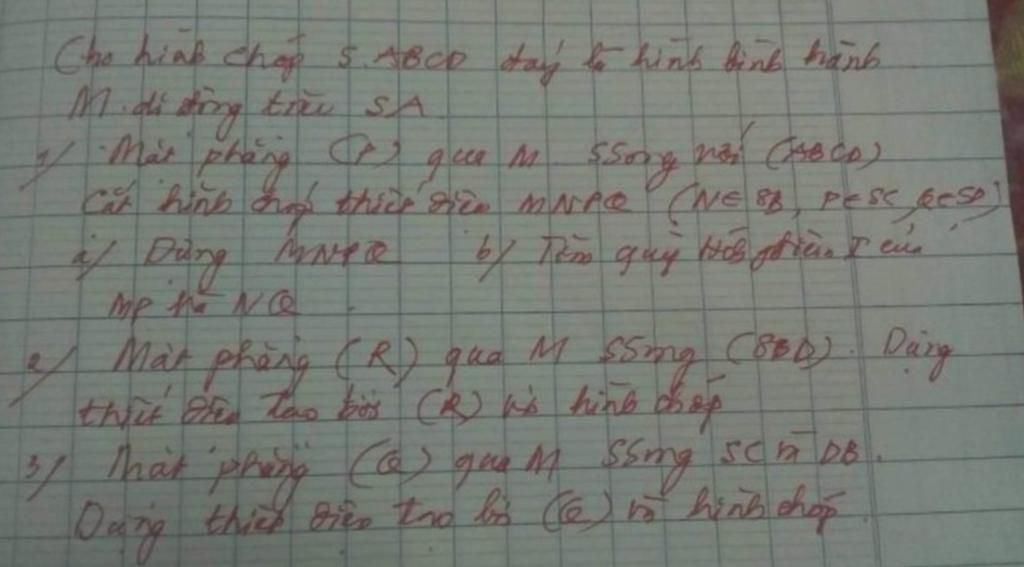 Cho hình chóp S.ABCD đáy là hình bình hành
M. di động trên SA
1/ Mặt phẳng (P) qua M SSong với (ABCD)
Cắt hình chóp thiết diện MNPQ (N∈SB, P∈SC, Q∈SD)
a/ Dựng MNPQ b/ Tìm quỹ tích điểm I của
MP và NQ
2/ Mặt phẳng (R) qua M SSong (SBD). Dựng
thiết diện tạo bởi (R) và hình chóp
3/ Mặt phẳng (Q) qua M SSong SC và DB.
Dựng thiết diện tạo bởi (Q) và hình chóp